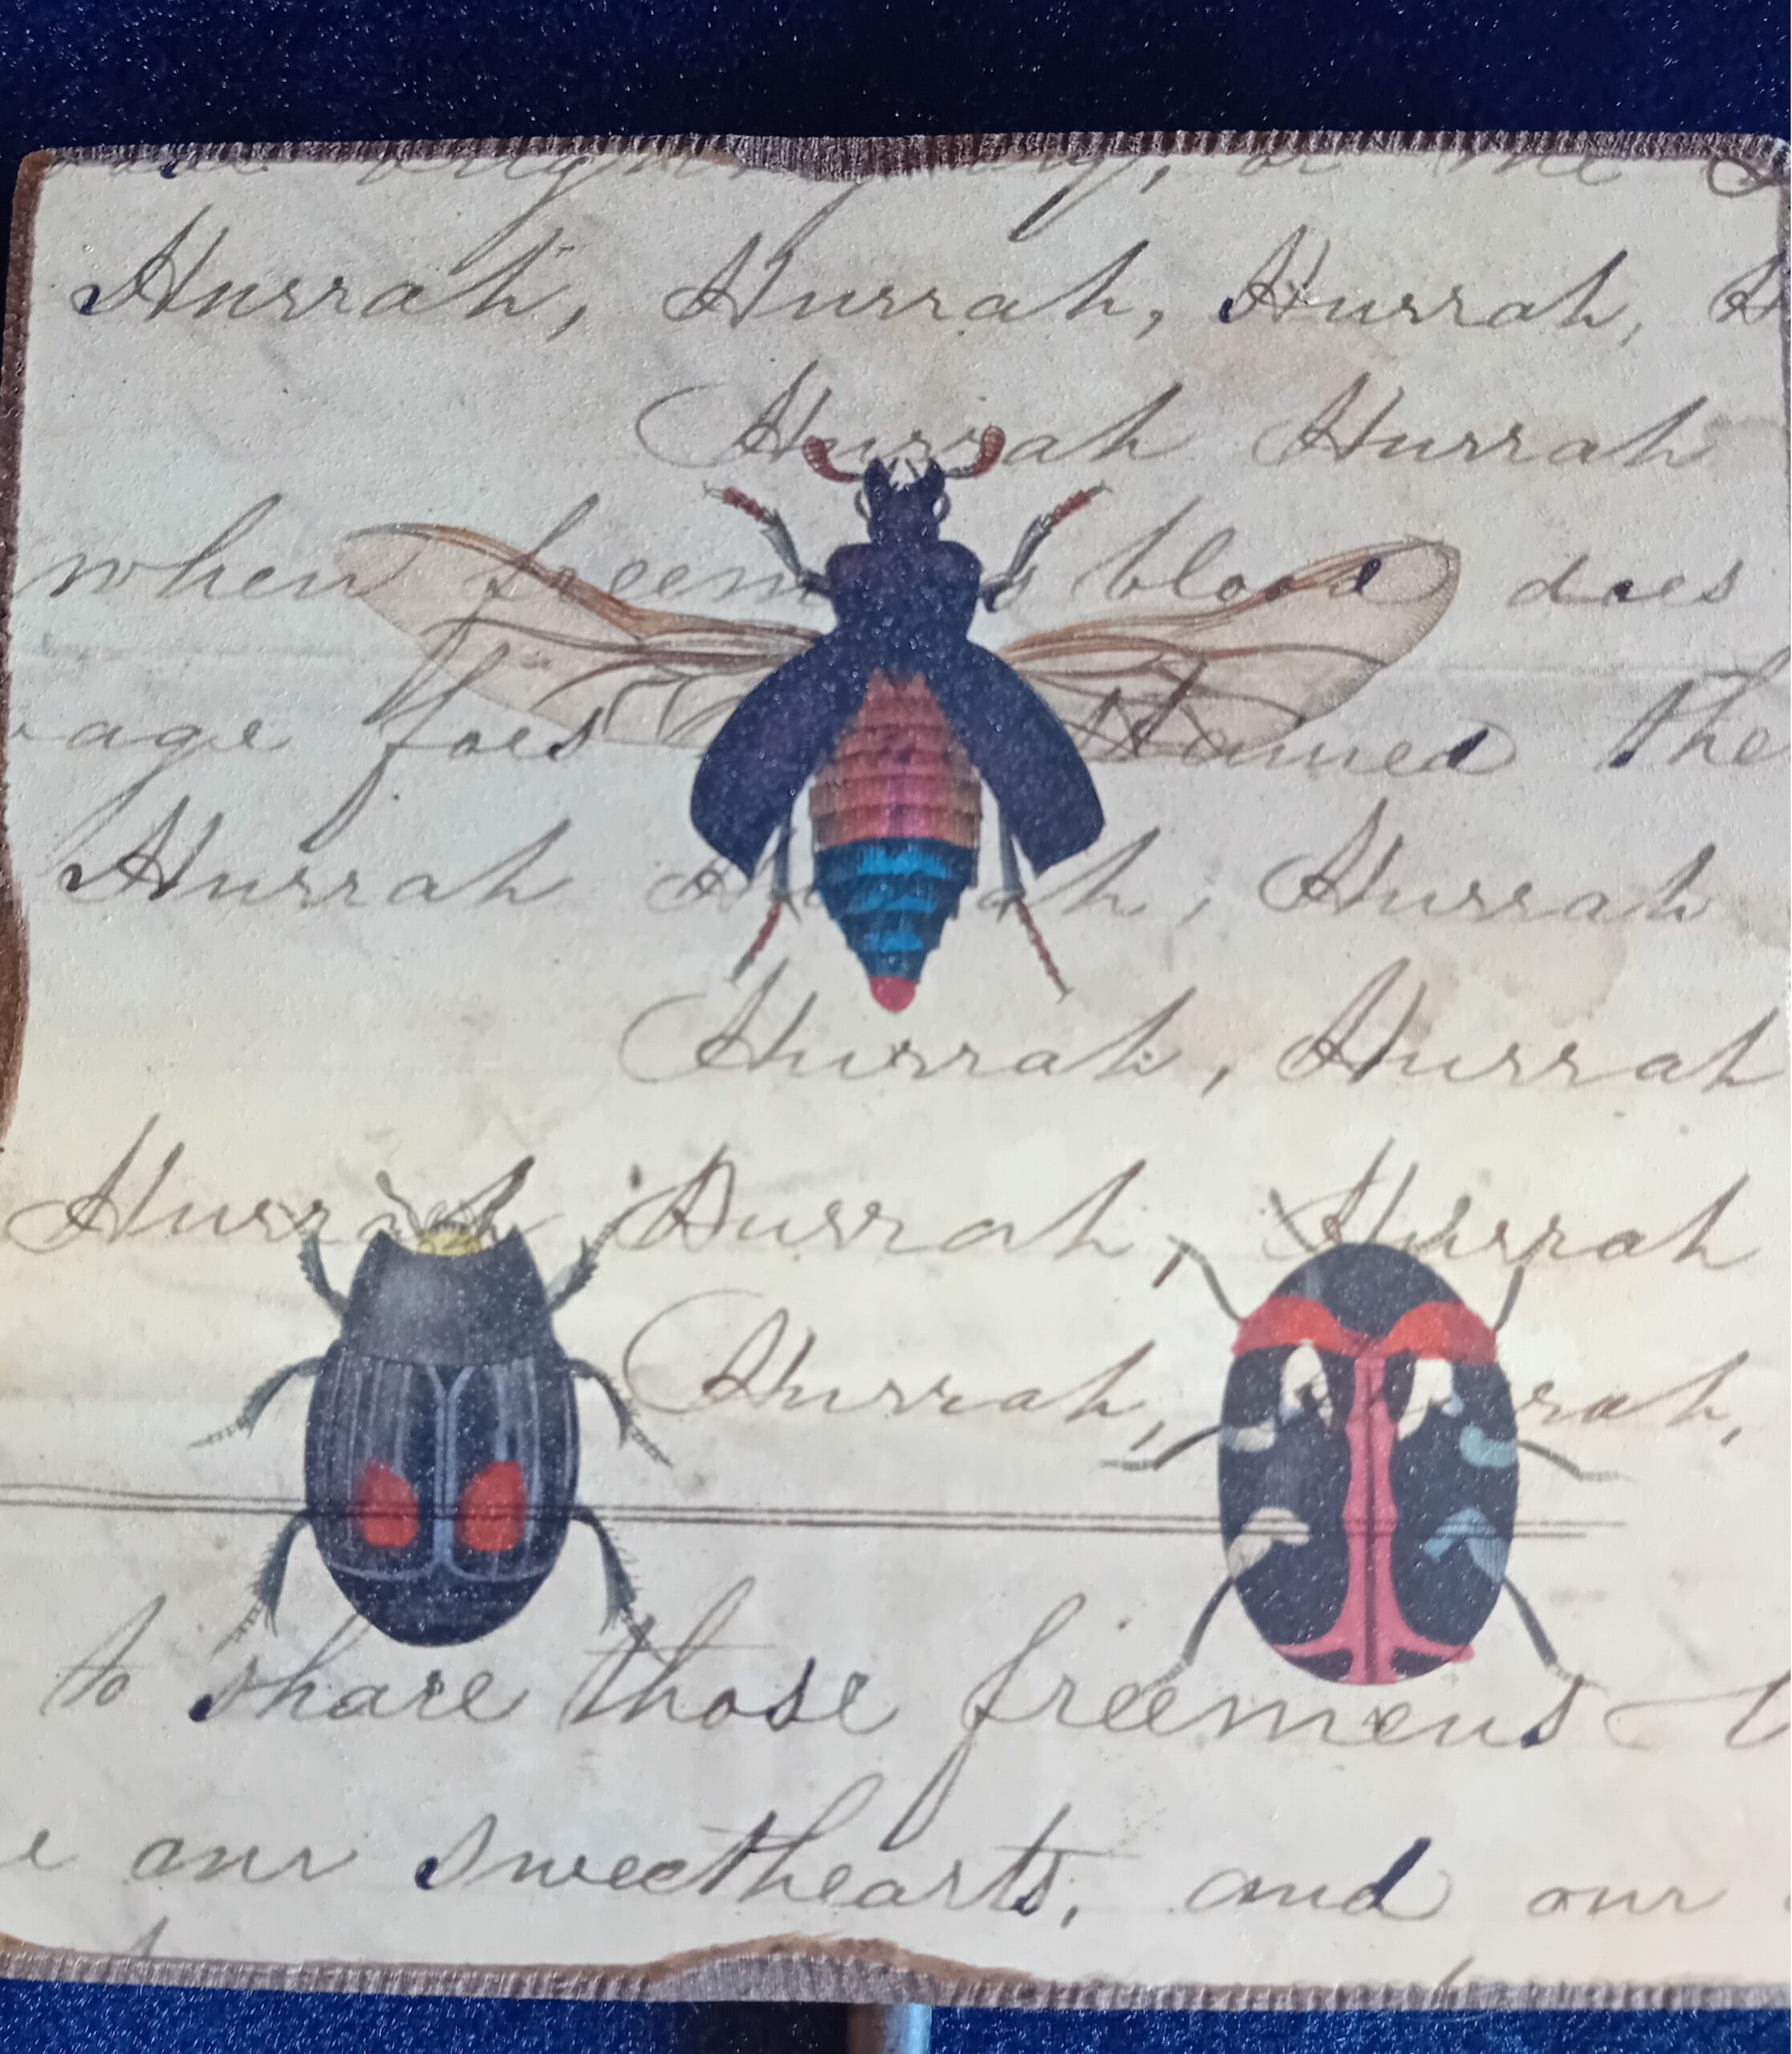 Hurrah, Hurrah, Hurrah,
Hurrah Hurrah
when blood does
foes stained the
Hurrah Hurrah, Hurrah
Hurrah, Hurrah
Hurrah Hurrah, Hurrah
Hurrah, Hurrah,
to share those freemens
our sweethearts, and our